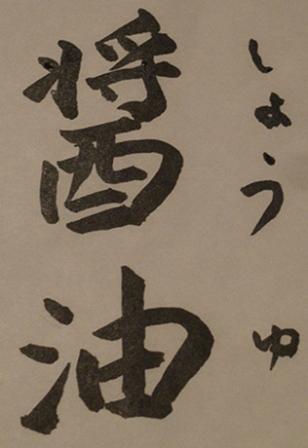 しょうゆ
醤油